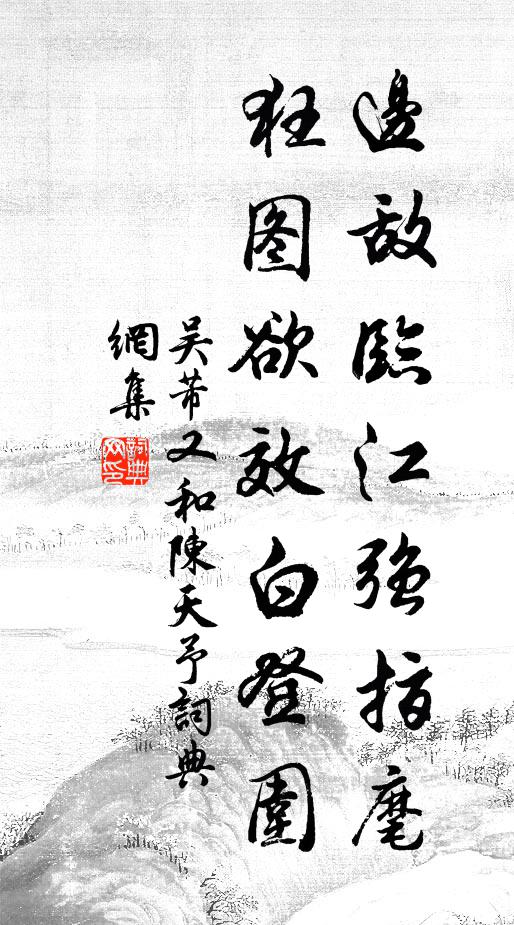 邊敵臨江強指麾
狂图欲效白登圍
吴芾又和陳天予詞典
網集
詞典
网印